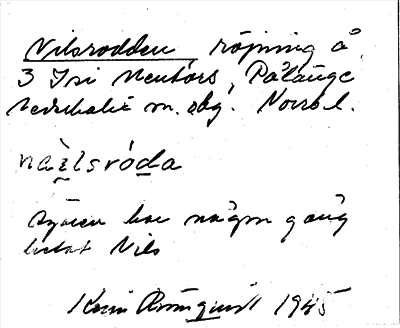 Nilsrodden, röjning å
3 Isi Mentors, Pålänge
Nederkalix m. obg. Norrb l.
nàilsróda
Ägaren har någon gång
hetat Nils
1945